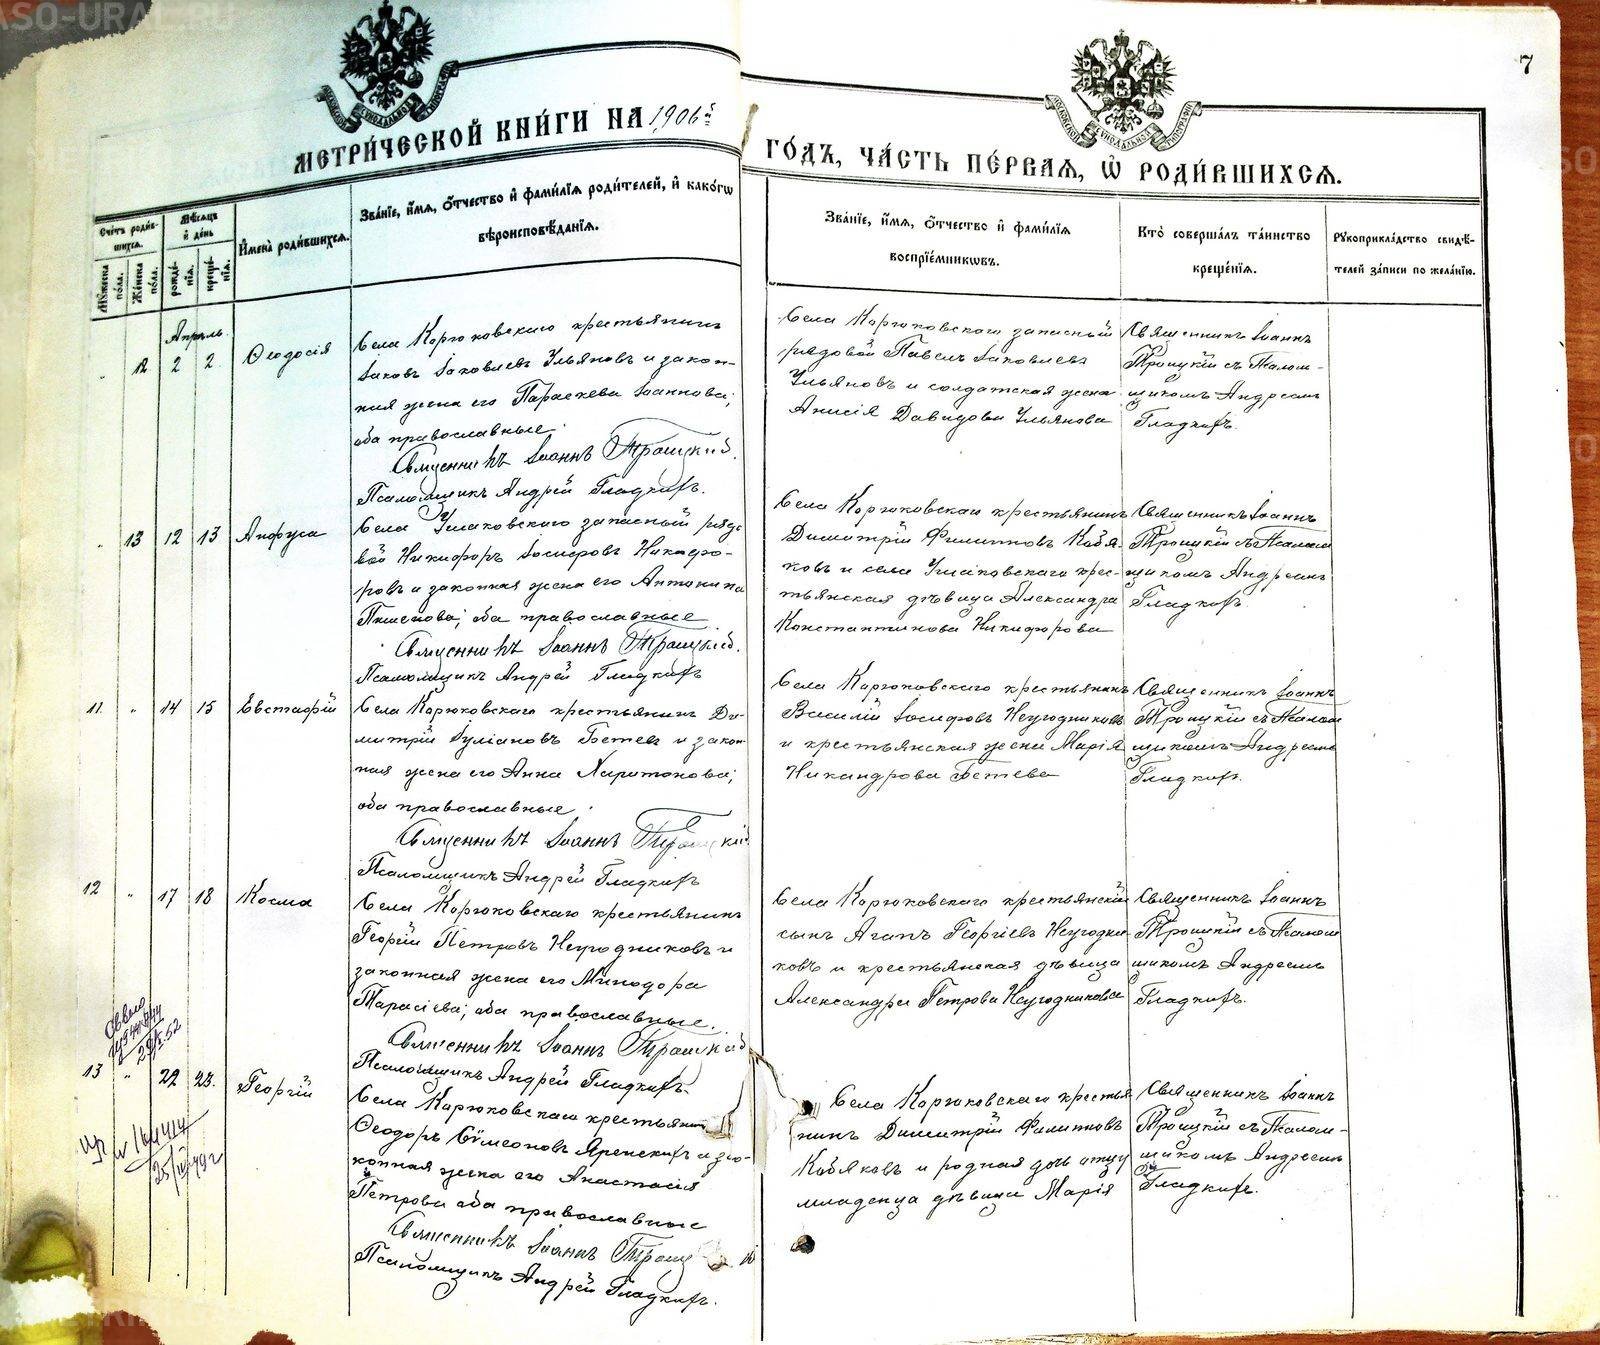 7
МЕТРИ́ЧЕСКОЙ КНИ́ГИ НА 1906й
ГО́ДЪ, ЧА́СТЬ ПЕ́РВАЯ, Ѡ҆ РОДИ́ВШИХСЯ.
Сче́тъ роди́в-
шихся.
Мꙋ́жеска по́ла.
Же́нска по́ла.
Мѣ́сяцъ и҆ де́нь
рожде́-
нїя.
креще́-
нїя.
И҆мена̀ роди́вшихся.
Зва́нїе, и҆́мя, ѻ҆́тчество и҆ фами́лїя роди́телей, и҆ како́гѡ
вѣроисповѣ́данїя.
Зва́нїе, и҆́мя, ѻ҆́тчество и҆ фами́лїя
воспрїе́мникѡвъ.
Кто̀ соверша́лъ та́инство
креще́нїя.
Рꙋкоприкла́дство свидѣ́-
телей за́писи по жела́нїю.
Апрѣль.
12 2 2 Ѳеодосія
Села Корюковскаго крестьянинъ
Іаковъ Іаковлевъ Ульяновъ и закон-
ная жена его Параскева Іоаннова;
оба православные.
Священникъ Іоаннъ Троицкій.
Псаломщикъ Андрей Гладкихъ.
Села Корюковскаго запасный
рядовой Павелъ Іаковлевъ
Ульяновъ и солдатская жена
Анисія Давидова Ульянова
Священникъ Іоаннъ
Троицкій съ Псалом-
щикомъ Андреемъ
Гладкихъ.
13 12 13 Анфуса
Села Ушаковскаго запасный рядо-
вой Никифоръ Іосифовъ Никифо-
ровъ и законная жена его Антонина
оба православные
Священникъ Іоаннъ Троицкій.
Псаломщикъ Андрей Гладкихъ
Села Корюковскаго крестьянинъ
Димитрій Филипповъ Кобя-
ковъ и села Ушаковскаго крес-
тьянская дѣвица Александра
Константинова Никифорова
Священникъ Іоаннъ
Троицкій съ Псалом
щикомъ Андреемъ
Гладкихъ.
11 " 14 15 Евстафій
Села Корюковскаго крестьянинъ Ди-
митрій Іуліановъ Бетевъ и закон-
ная жена его Анна Харитонова;
оба православные.
Священникъ Іоаннъ Троицкій
Псаломщикъ Андрей Гладкихъ
Села Корюковскаго крестьянинъ
Василій Іосифовъ Неугодниковъ
и крестьянская жена Марія
Никандрова Бетева
Священникъ Іоаннъ
Троицкій съ Псалом
щикомъ Андреемъ
Гладкихъ.
12 " 17 18 Косма
Села Корюковскаго крестьянинъ
Георгій Петровъ Неугодниковъ и
законная жена его Минодора
Тарасіева; оба православные.
Священникъ Іоаннъ Троицкій
Псаломщикъ Андрей Гладкихъ.
Села Корюковскаго крестьянскій
сынъ Агапъ Георгіевъ Неугодни-
ковъ и крестьянская дѣвица
Александра Петрова Неугодникова
Священникъ Іоаннъ
Троицкій съ Псалом
щикомъ Андреемъ
Гладкихъ.
13 " 22 23. Георгій
Села Корюковскаго крестьянинъ
Ѳеодоръ Сѵмеоновъ Яренскихъ и за-
конная жена его Анастасія
Петрова оба православные
Священникъ Іоаннъ
Псаломщикъ Андрей Гладкихъ.
Села Корюковскаго крестья
нинъ Димитрій Филипповъ
Кобяковъ и родная дочь отцу
младенца дѣвица Марія
Священникъ Іоаннъ
Троицкій съ Псалом-
щикомъ Андреемъ
Гладкихъ.